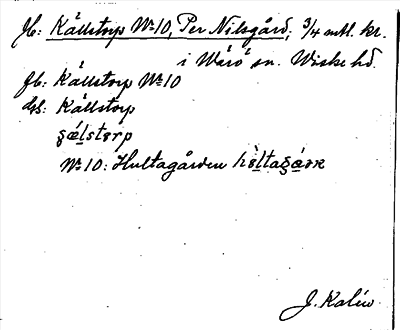 Jb: Källstorp No 10, Per Nilsgård, 3/4 mtl. kr.
i Wärö sn. Wiske hd.
fb: Källstorp No 10
ds: Källstorp
No 10: Hultagården
J. Kalén